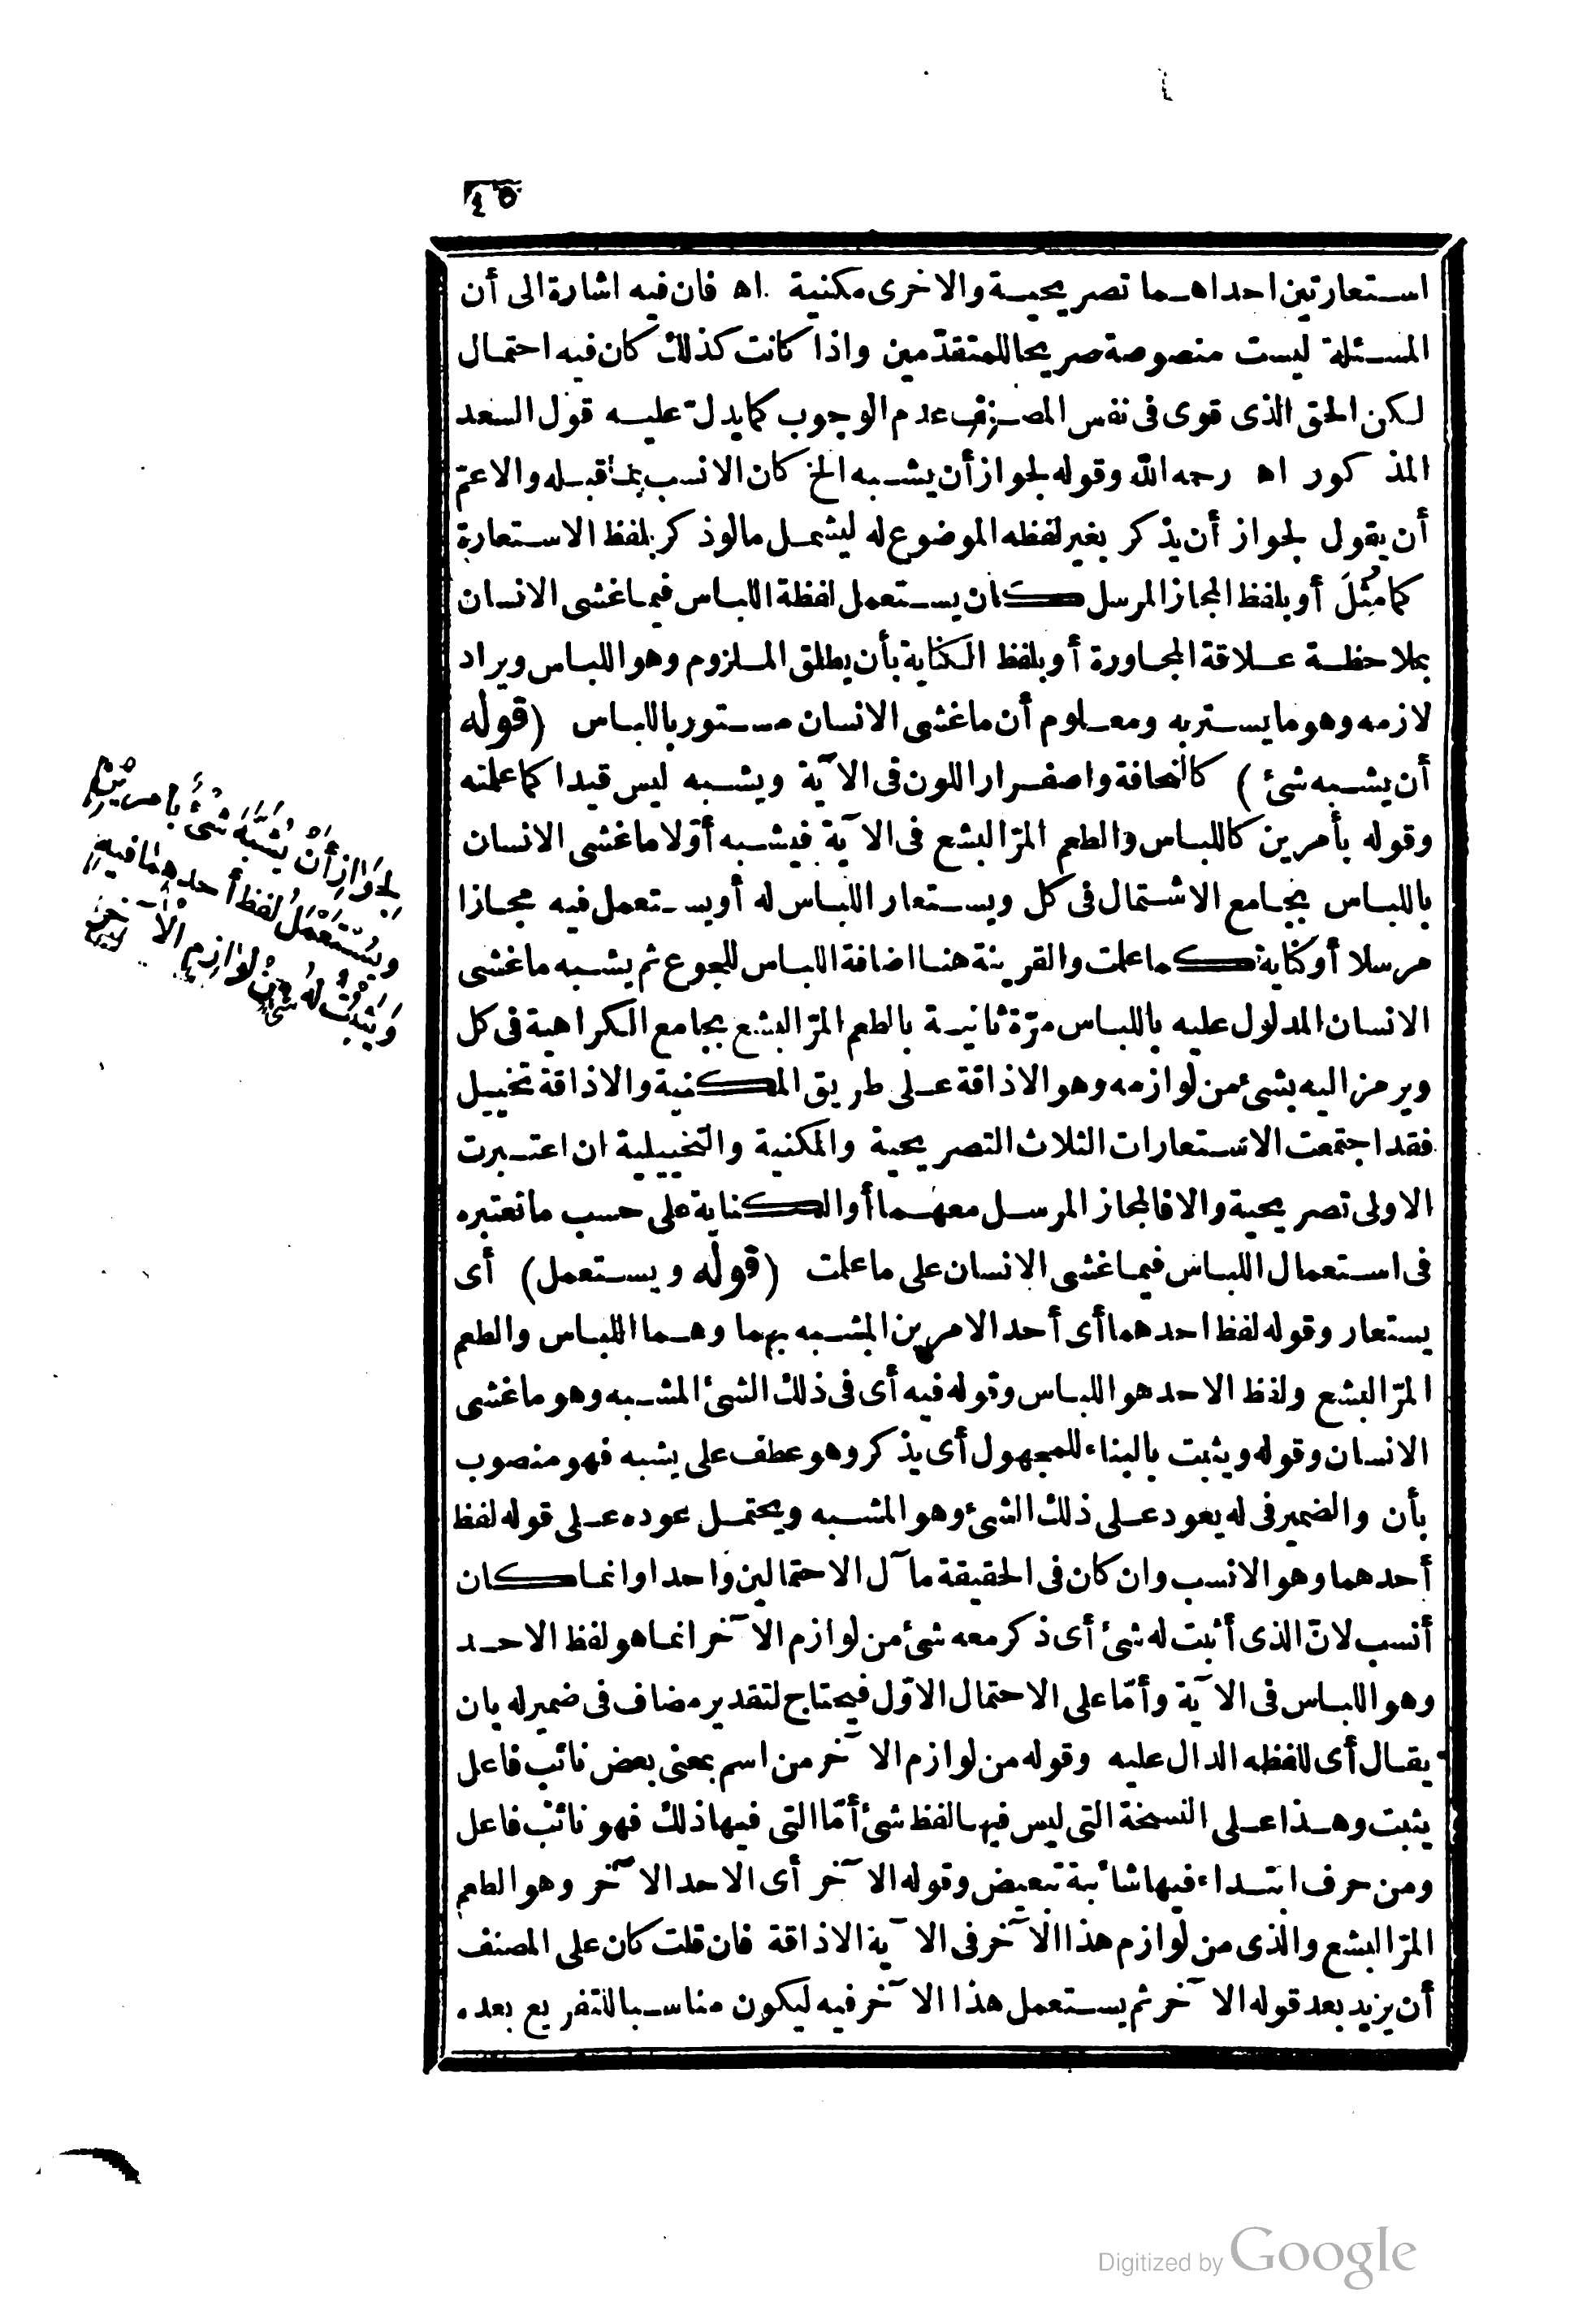 ٤٥
استعارتين احداهما تصريحية والاخرى مكنية اه فان فيه اشارة الى أن
المسئلة ليست منصوصة صريحا للمتقدّمين واذا كانت كذلك كان فيه احتمال
لكن الحق الذى قوى فى نفس المصنف عدم الوجوب كما يدلّ عليه قول السعد
المذكور اه رحمه الله وقوله لجواز أن يشبه الخ كان الانسب بما قبله والاعمّ
أن يقول لجواز أن يذكر بغير لفظه الموضوع له ليشمل ما لو ذكر بلفظ الاستعارة
كما مُثِلَ أو بلفظ المجاز المرسل كان يستعمل لفظة اللباس فيما غشى الانسان
بملاحظة علاقة المجاورة أو بلفظ الكناية بأن يطلق الملزوم وهو اللباس ويراد
لازمه وهو ما يستر به ومعلوم أن ما غشى الانسان مستور باللباس (قوله
أن يشبه شئ) كالنحافة واصفرار اللون فى الآية ويشبه ليس قيدا كما علمته
وقوله بأمرين كاللباس والطعم المرّ البشع فى الآية فيشبه أوّلا ما غشى الانسان
باللباس بجامع الاشتمال فى كل ويستعار اللباس له أو يستعمل فيه مجازا
مرسلا أو كناية كما علمت والقرينة هنا اضافة اللباس للجوع ثم يشبه ما غشى
الانسان المدلول عليه باللباس مرّة ثانية بالطعم المرّ البشع بجامع الكراهية فى كل
ويرمز اليه بشئ من لوازمه وهو الاذاقة على طريق المكنية والاذاقة تخييل
فقد اجتمعت الاستعارات الثلاث التصريحية والمكنية والتخييلية ان اعتبرت
الاولى تصريحية والا فالمجاز المرسل معهما أو الكناية على حسب ما تعتبره
فى استعمال اللباس فيما غشى الانسان على ما علمت (قوله ويستعمل) أى
يستعار وقوله لفظ احدهما أى أحد الامرين المشبه بهما وهما اللباس والطعم
المرّ البشع ولفظ الاحد هو اللباس وقوله فيه أى فى ذلك الشئ المشبه وهو ما غشى
الانسان وقوله ويثبت بالبناء للمجهول أى يذكر وهو عطف على يشبه فهو منصوب
بأن والضمير فى له يعود على ذلك الشئ وهو المشبه ويحتمل عوده على قوله لفظ
أحدهما وهو الانسب وان كان فى الحقيقة مآل الاحتمالين واحدا وانما كان
أنسب لانّ الذى أثبت له شئ أى ذكر معه شئ من لوازم الآخر انما هو لفظ الاحد
وهو اللباس فى الآية وأمّا على الاحتمال الاوّل فيحتاج لتقدير مضاف فى ضمير له بان
يقال أى للفظه الدال عليه وقوله من لوازم الآخر من اسم بمعنى بعض نائب فاعل
يثبت وهذا على النسخة التى ليس فيها لفظ شئ أمّا التى فيها ذلك فهو نائب فاعل
ومن حرف ابتداء فيها شائبة تبعيض وقوله الآخر أى الاحد الآخر وهو الطعم
المرّ البشع والذى من لوازم هذا الآخر فى الآية الاذاقة فان قلت كان على المصنف
أن يزيد بعد قوله الآخر ثم يستعمل هذا الآخر فيه ليكون مناسبا للتفريع بعده
لِجَوَازِ أَنْ يُشَبَّهَ شَئٌ بِأمرَيْنِ
ويُسْتَعْمَلَ لفظُ أحدهما فيه
وَيَثْبُتُ لَهُ شئٌ مِنْ لَوازِمِ الْآخَرِ
Digitized by Google